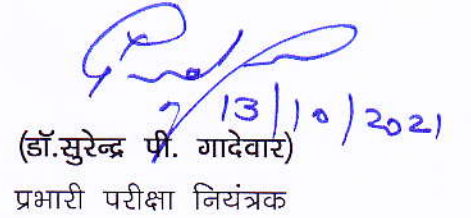 13/10/2021
(डॉ.सुरेन्द्र पी. गादेवार)
प्रभारी परीक्षा नियंत्रक